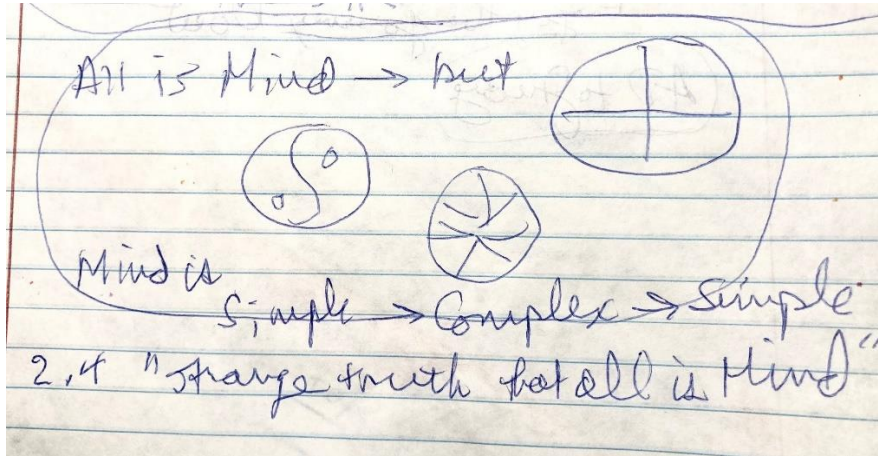 All is Mind → but
Mind is
Simple → Complex → Simple
2.4 "strange truth that all is Mind"